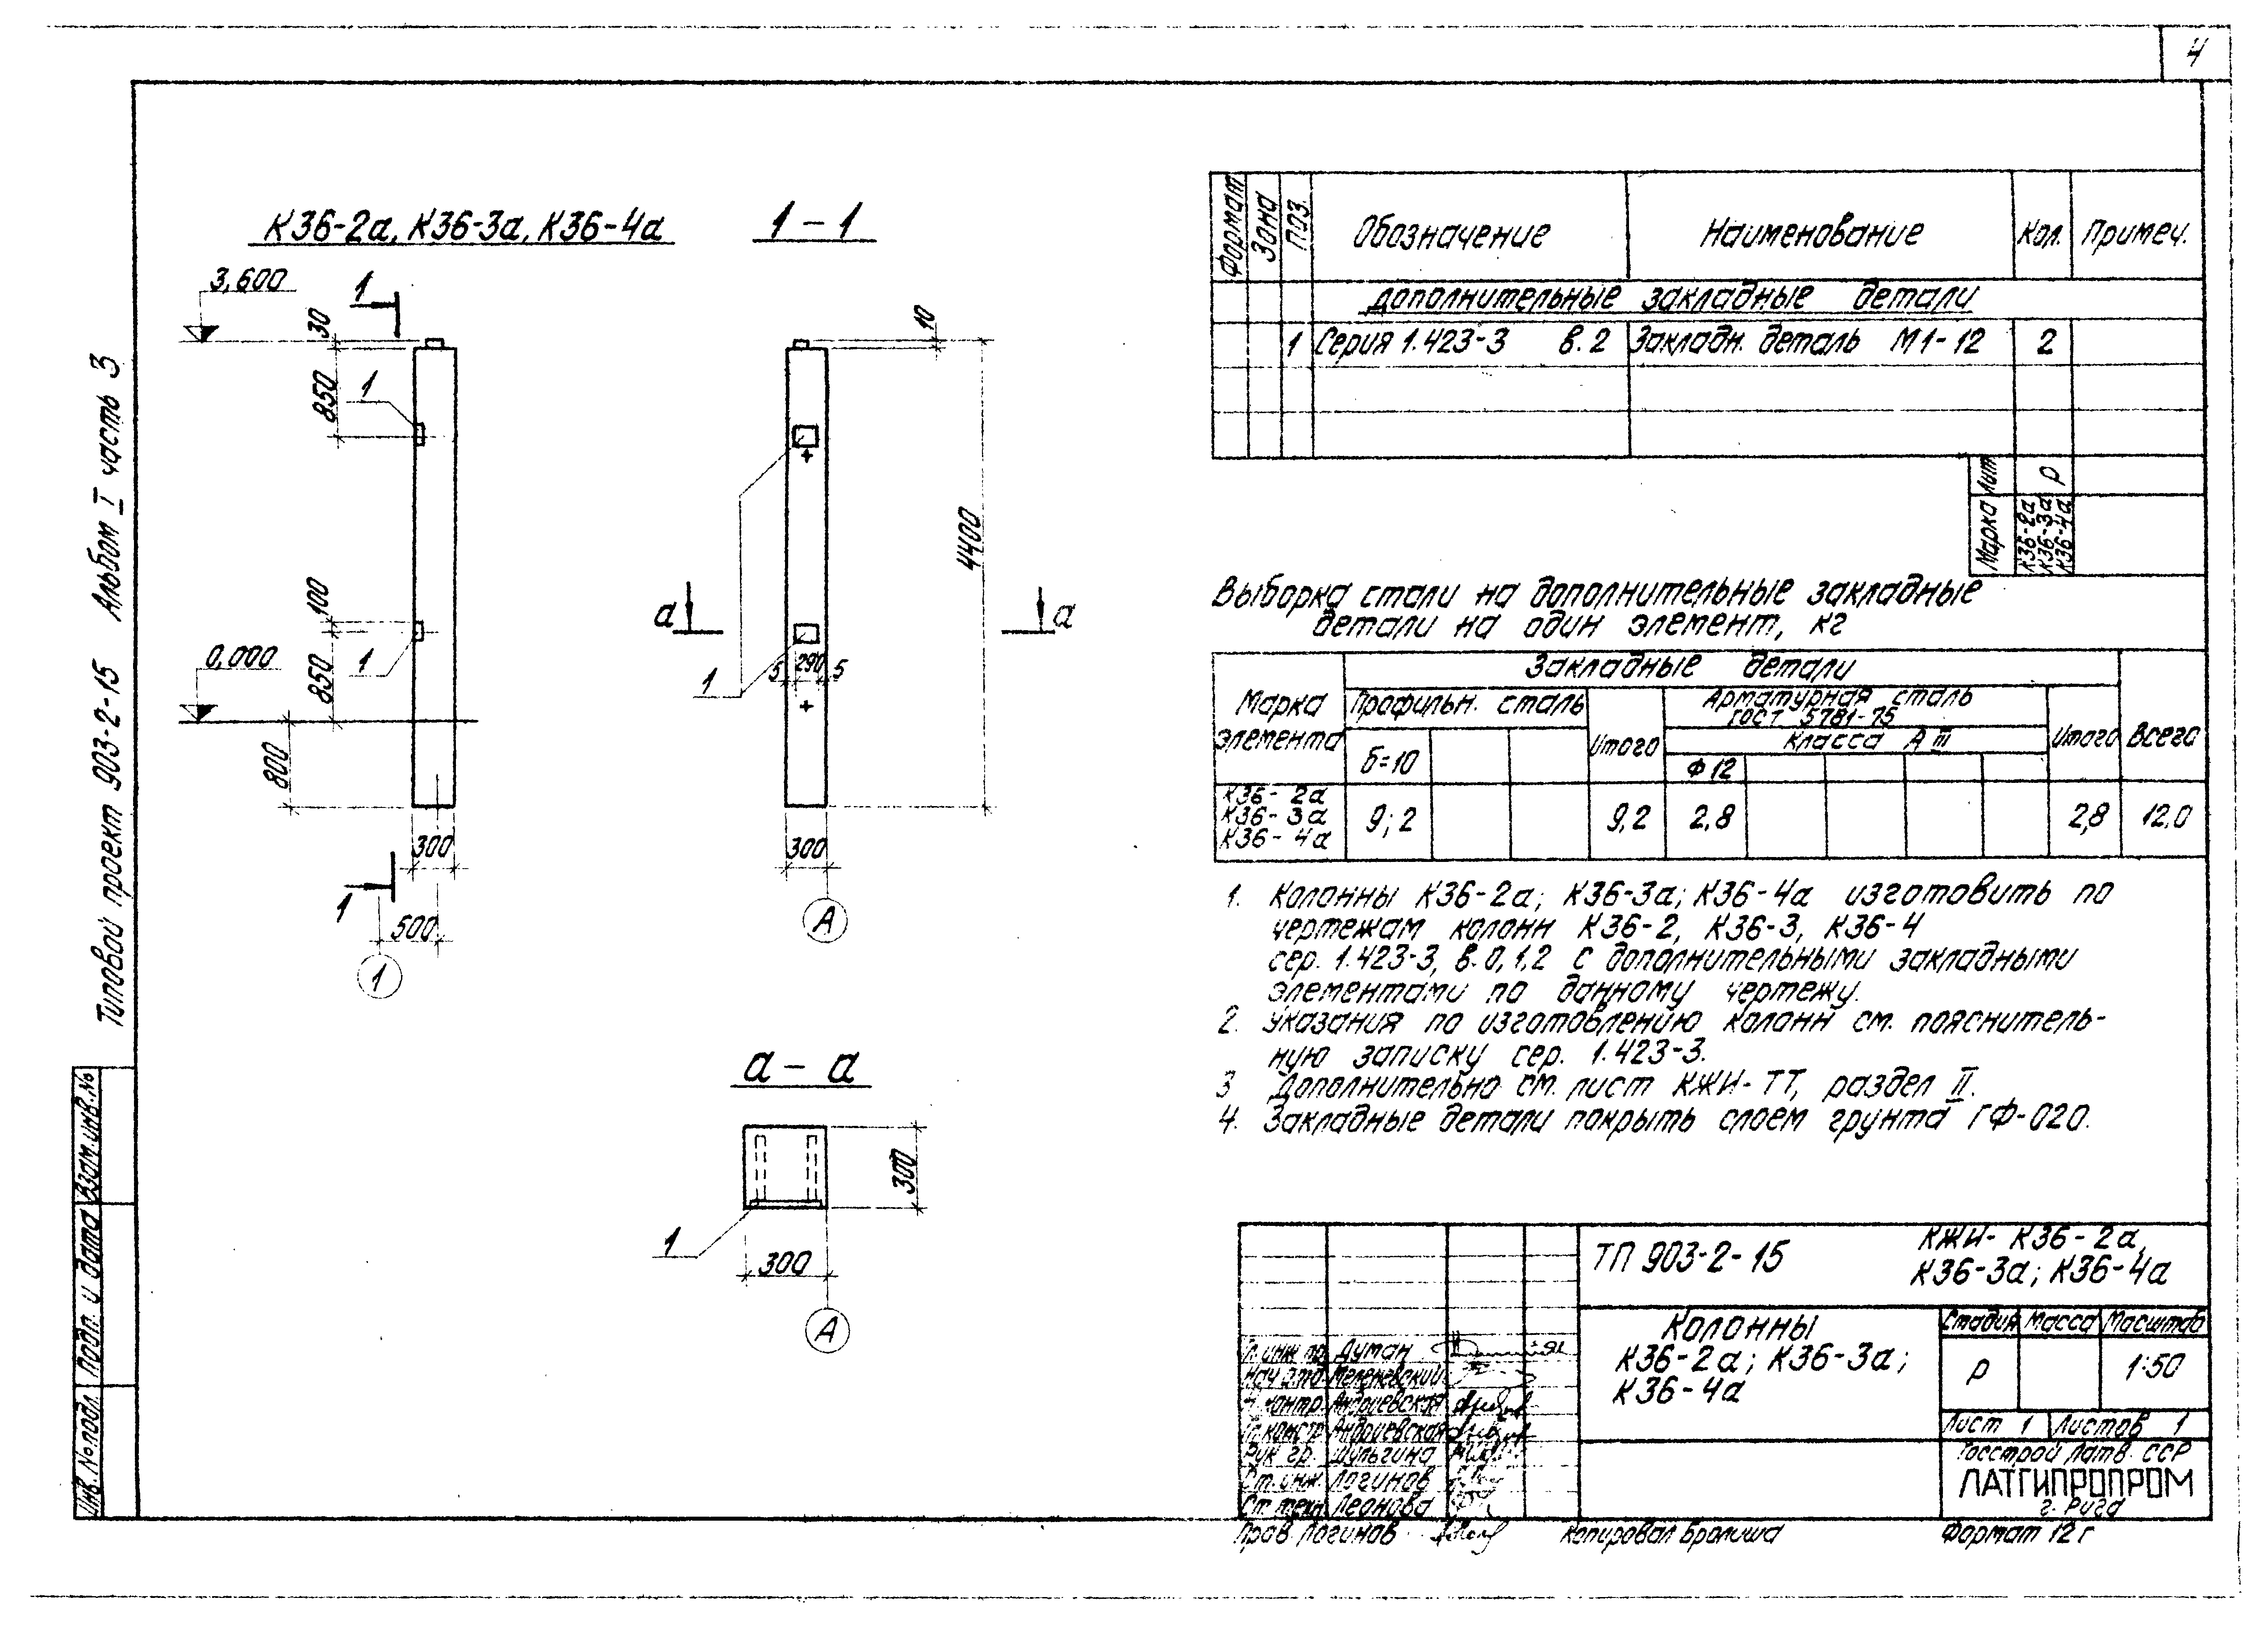 4
Типовой проект 903-2-15 Альбом I часть 3
К36-2а, К36-3а, К36-4а
1-1
3,600
1
30
10
850
1
4400
100
1
0,000
850
800
а
а
1
5 290 5
300
300
1
500
1
А
а-а
300
1
300
А
Формат Зона Поз. Обозначение Наименование Кол. Примеч.
Дополнительные закладные детали
1 Серия 1.423-3 в.2 Закладн. деталь М1-12 2
Лит. Р
Марка К36-2а К36-3а К36-4а
Выборка стали на дополнительные закладные
детали на один элемент, кг
Марка элемента
Закладные детали
Профильн. сталь
Итого
Арматурная сталь
ГОСТ 5781-75
Класса А III
Итого
Всего
б=10
Ф12
К36-2а
К36-3а
К36-4а
9;2 9,2 2,8 2,8 12,0
1. Колонны К36-2а; К36-3а; К36-4а изготовить по
чертежам колонн К36-2, К36-3, К36-4
сер. 1.423-3, в.0,1,2 с дополнительными закладными
элементами по данному чертежу.
2. Указания по изготовлению колонн см. пояснитель-
ную записку сер. 1.423-3.
3 Дополнительно см. лист КЖИ-ТТ, раздел II.
4. Закладные детали покрыть слоем грунта ГФ-020.
ТП 903-2-15
КЖИ- К36-2а,
К36-3а; К36-4а
Колонны
К36-2а; К36-3а;
К36-4а
Стадия Масса Масштаб
Р 1:50
Лист 1 Листов 1
Госстрой Латв. ССР
ЛАТГИПРОПРОМ
г. Рига
Гл. инж. пр. Думан
Нач. отд. Меленевский
Н. контр. Андриевская
Гл. констр. Андриевская
Рук. гр. Шульгина
Ст. инж. Логинов
Ст. техн. Леонова
Пров. Логинов
Копировал Бролиша
Формат 12г
Инв. № подл. Подп. и дата Взам. инв. №